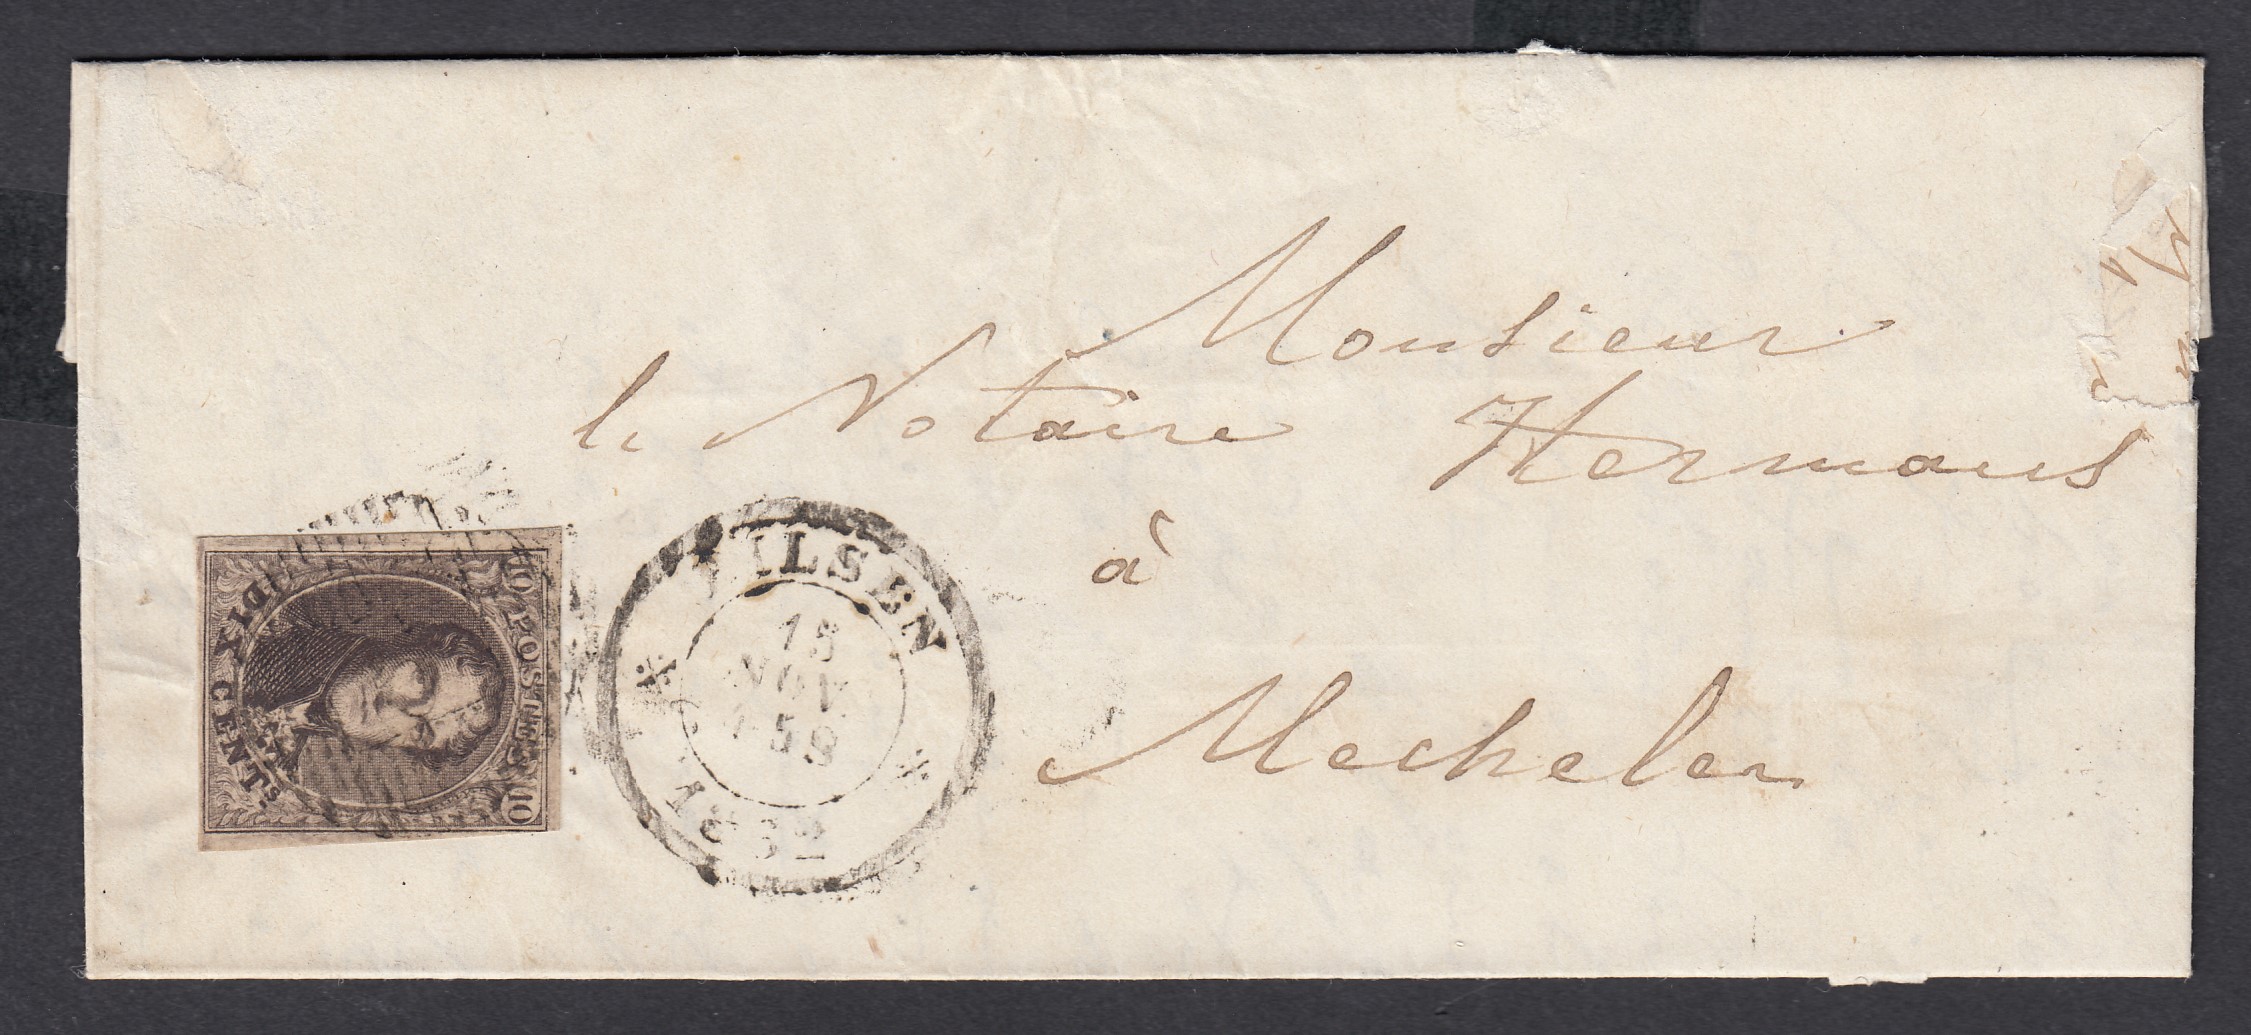 Monsieur
le Notaire Hermans
à
Mechelen
10 POSTES 10
DIX CENTS.
BILSEN
15
NOV
1859